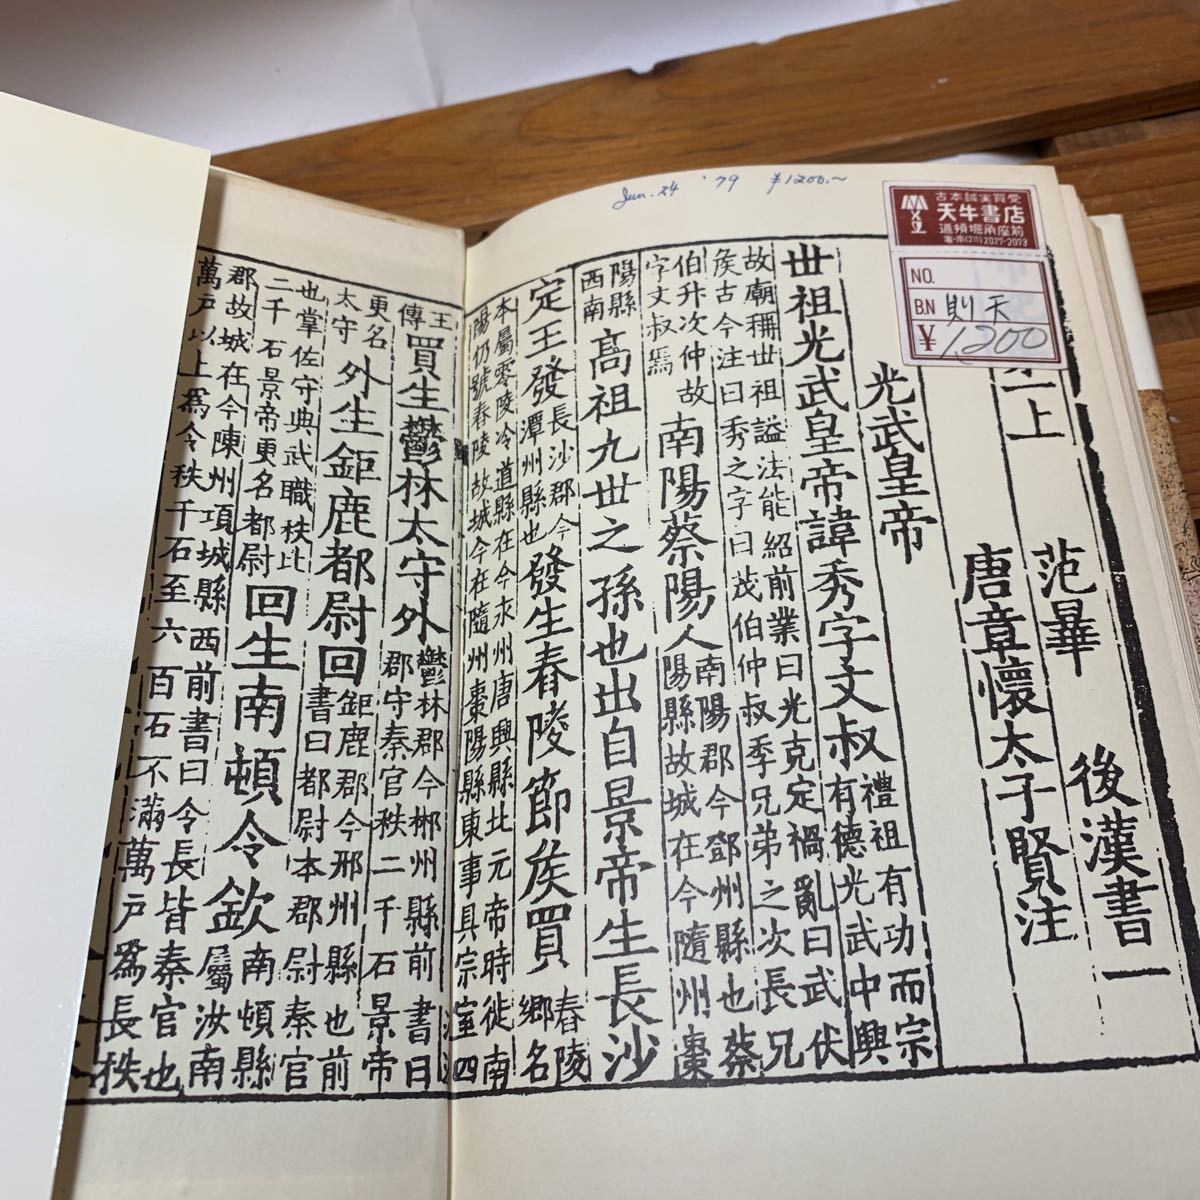 Jun. 24 '79 ¥1200.~
古本誠実買受
天牛書店
道頓堀角座前
電・南(211)2027-2073
NO.
B.N 則天
¥ 1200
一上 范曄 後漢書一
唐章懷太子賢注
光武皇帝
丗祖光武皇帝諱秀字文叔
禮祖有功而宗
有德光武中興
故廟稱丗祖謚法能紹前業曰光克定禍亂曰武伏
侯古今注曰秀之字曰茂伯仲叔季兄弟之次長兄
伯升次仲故
字文叔焉
南陽蔡陽人
南陽郡今鄧州縣也蔡
陽縣故城在今隨州棗
陽縣
西南
高祖九丗之孫也出自景帝生長沙
定王發
長沙郡今
潭州縣也
發生舂陵節侯買
舂陵
鄉名
本屬零陵冷道縣在今永州唐興縣北元帝時徙南
陽仍號舂陵故城今在隨州棗陽縣東事具宗室四
王
傳
買生鬱林太守外
鬱林郡今郴州縣前書曰
郡守秦官秩二千石景帝
更名
太守
外生鉅鹿都尉回
鉅鹿郡今邢州縣也前
書曰都尉本郡尉秦官
也掌佐守典武職秩比
二千石景帝更名都尉
回生南頓令欽
南頓縣
屬汝南
郡故城在今陳州項城縣西前書曰令長皆秦官也
萬戶以上爲令秩千石至六百石不滿萬戶爲長秩